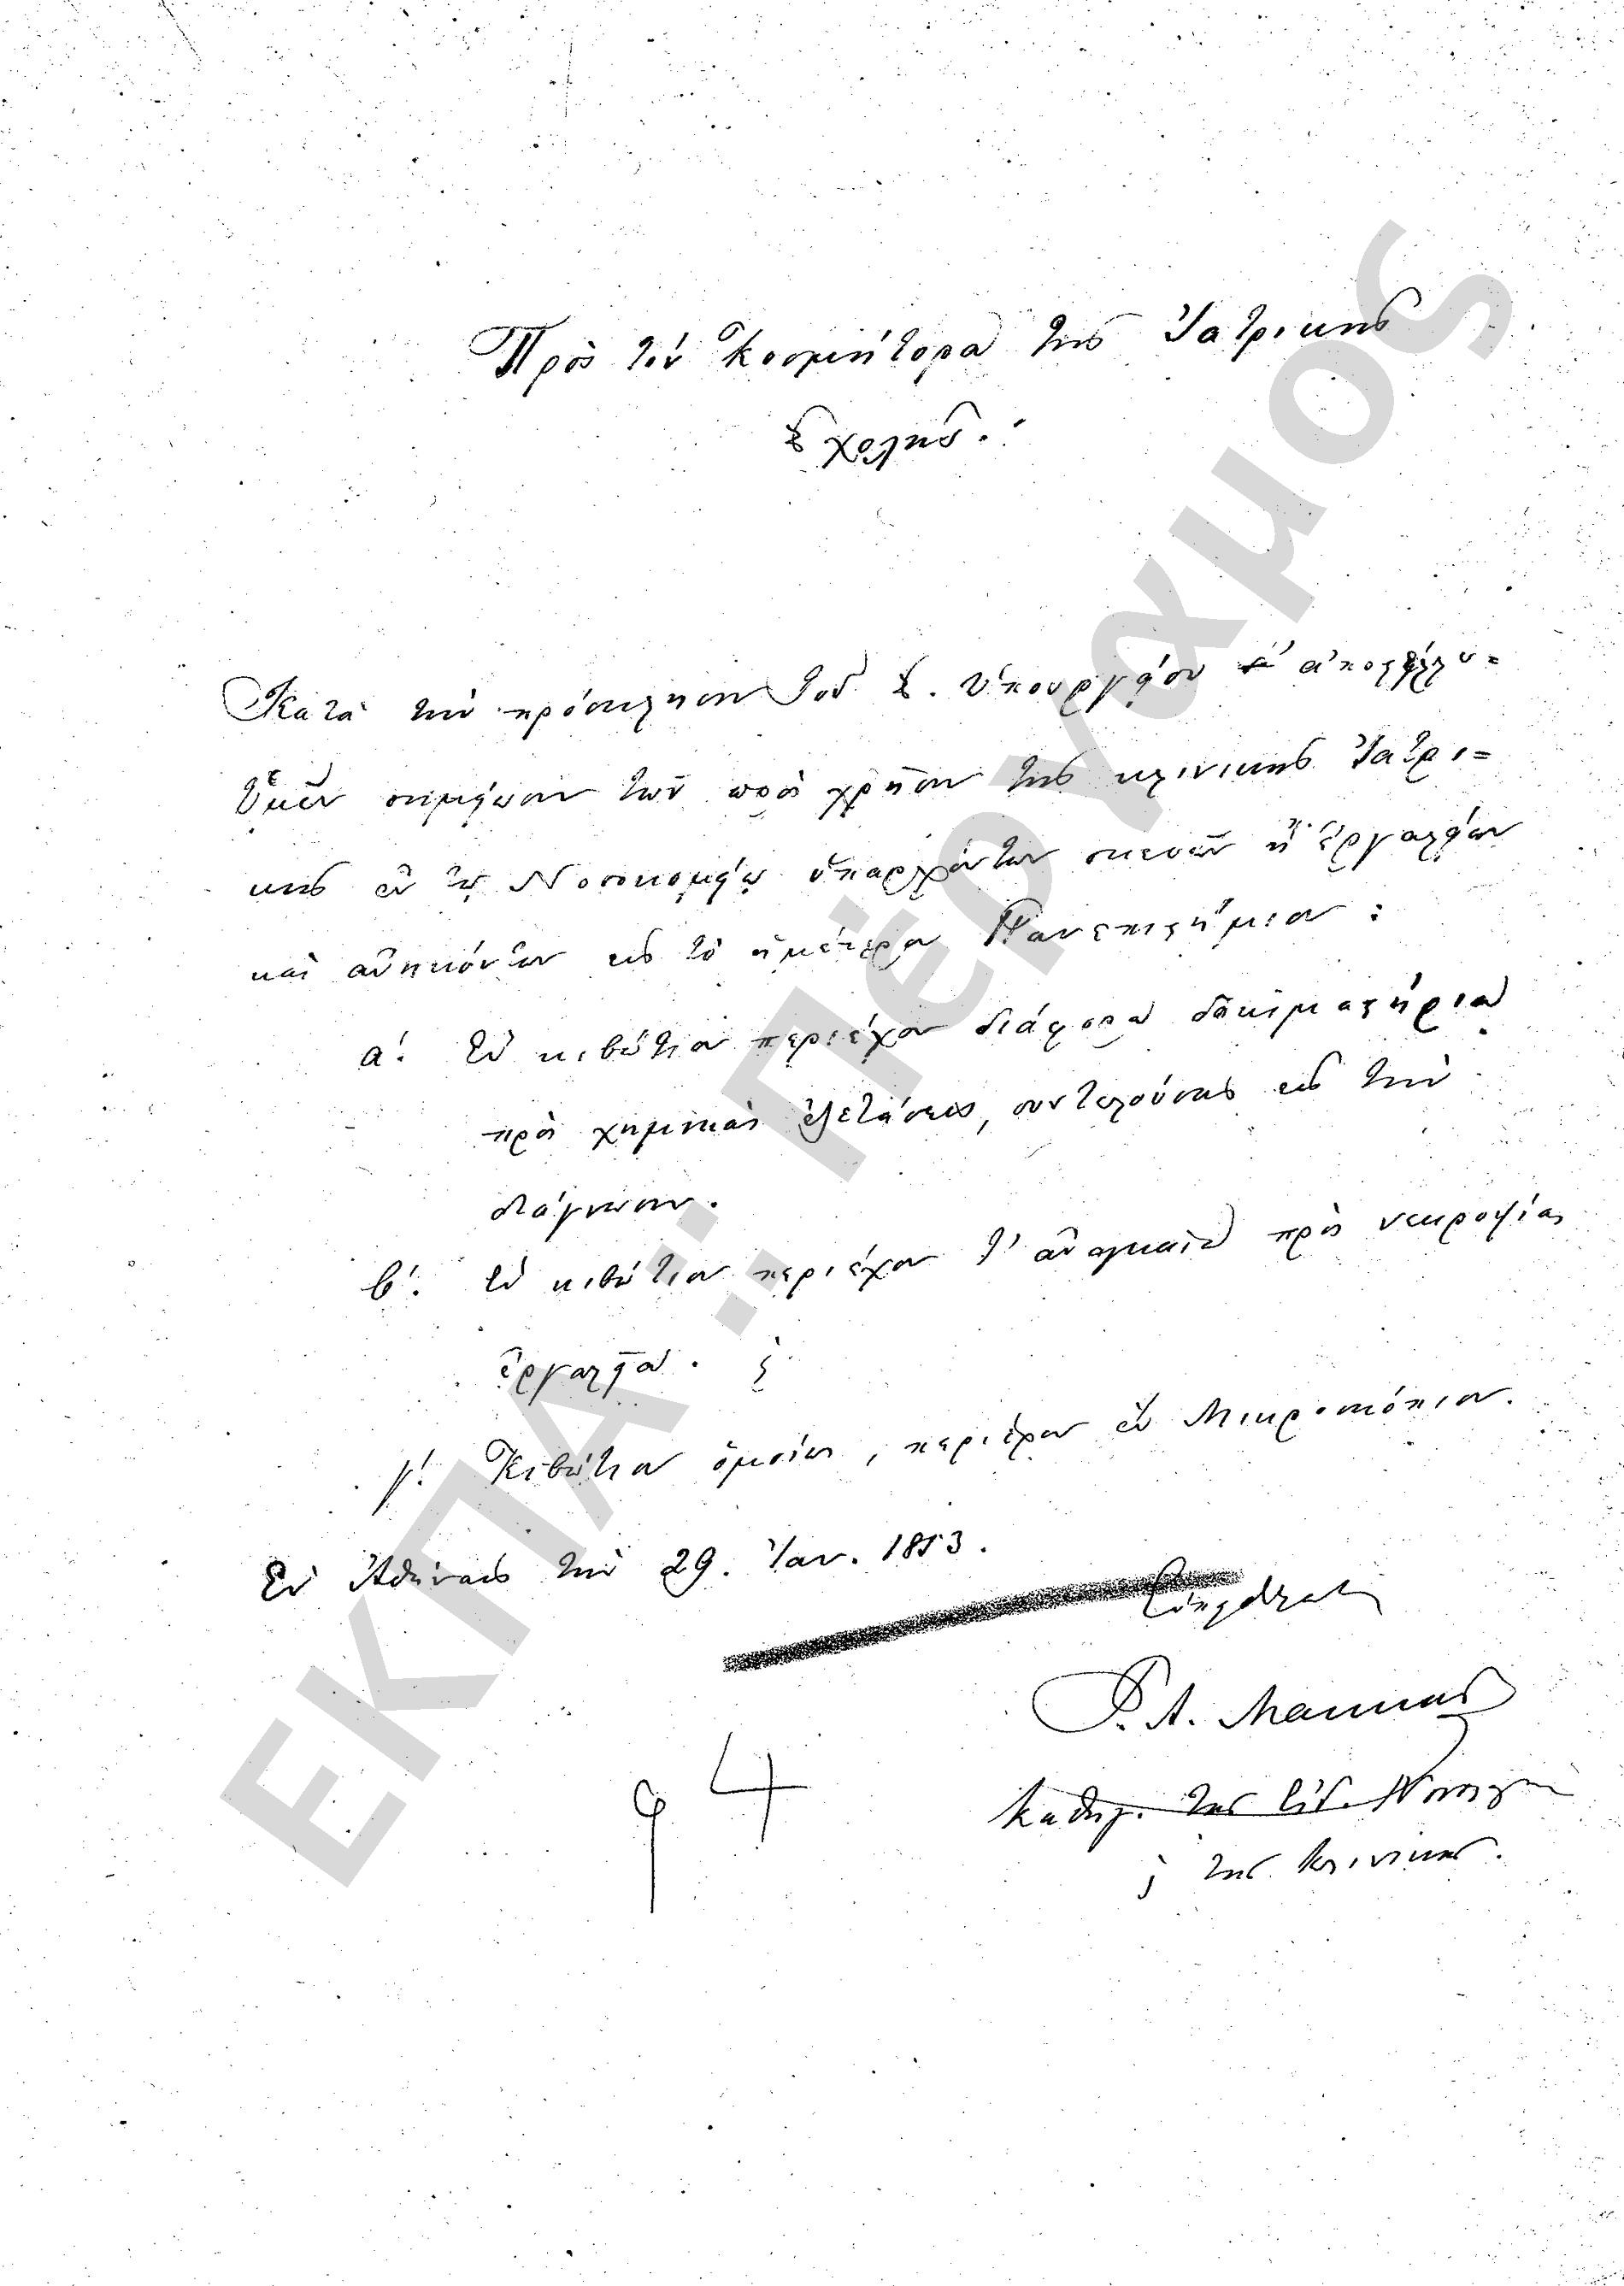 Πρὸς τὸν Κοσμήτορα τῆς Ἰατρικῆς
Σχολῆς.
Κατὰ τὴν πρόσκλησιν τοῦ Σ. Ὑπουργείου ἀποστέλλω=
Ὑμῖν σημείωσιν τῶν πρὸς χρῆσιν τῆς κλινικῆς Ἰατρι=
κῆς ἐν τῷ Νοσοκομείῳ ὑπαρχόντων σκευῶν ἢ ἐργαλείων
καὶ ἀνηκόντων εἰς τὸ ἡμέτερον Πανεπιστήμιον:
α'. Ἓν κιβώτιον περιέχον διάφορα δοκιμαστήρια
πρὸς χημικὰς ἐξετάσεις, συντελούσας εἰς τὴν
διάγνωσιν.
β'. Ἓν κιβώτιον περιέχον τ' ἀναγκαῖα πρὸς νεκροψίας
ἐργαλεῖα.
γ'. Κιβώτιον ὁμοίως, περιέχον ἓν Μικροσκόπιον.
Ἐν Ἀθήναις τὴν 29. Ἰαν. 1853.
Εὐπειθέστατος
Καθηγ. τῆς Εἰδ. Νοσολ.
τῆς Κλινικῆς.
94
ΕΚΠΑ: Πέργαμος